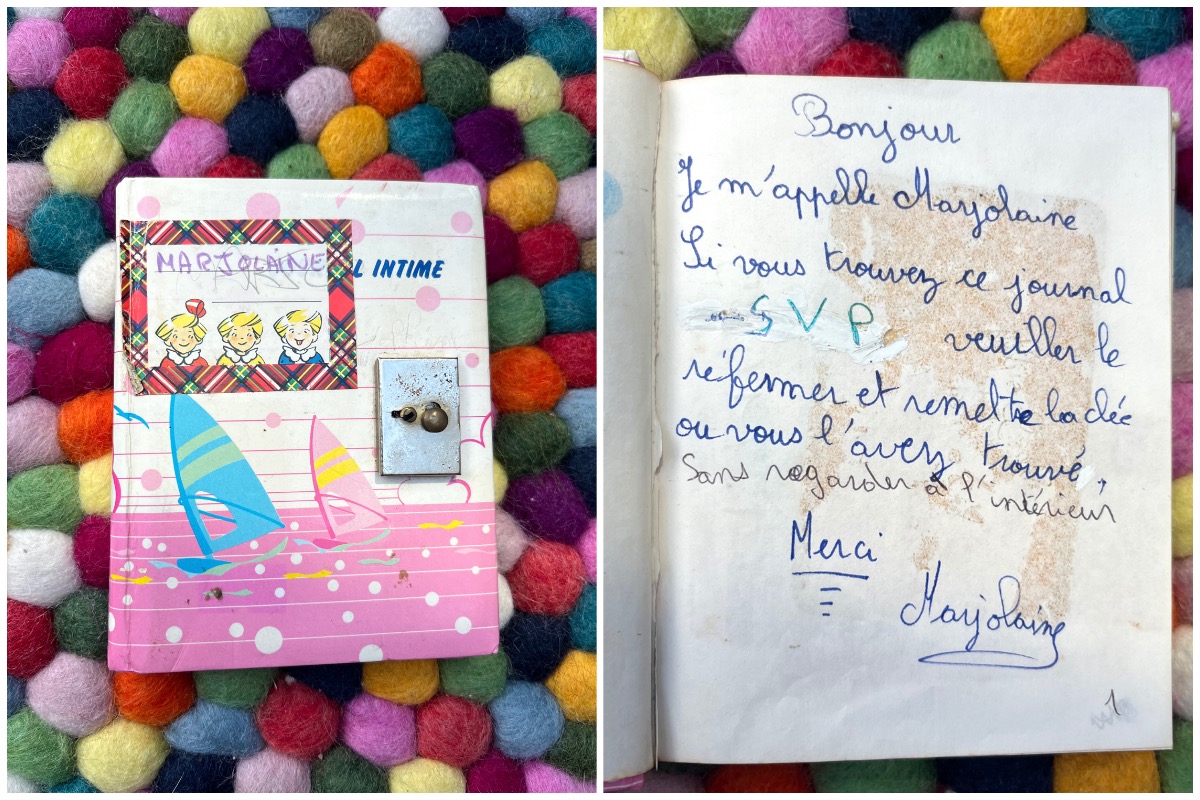 MARJOLAINE
L INTIME
Bonjour
Je m'appelle Marjolaine
Si vous trouvez ce journal
SVP veuiller le
réfermer et remettre la clée
ou vous l'avez trouvé,
Sans regarder à l'intérieur
Merci
Marjolaine
1